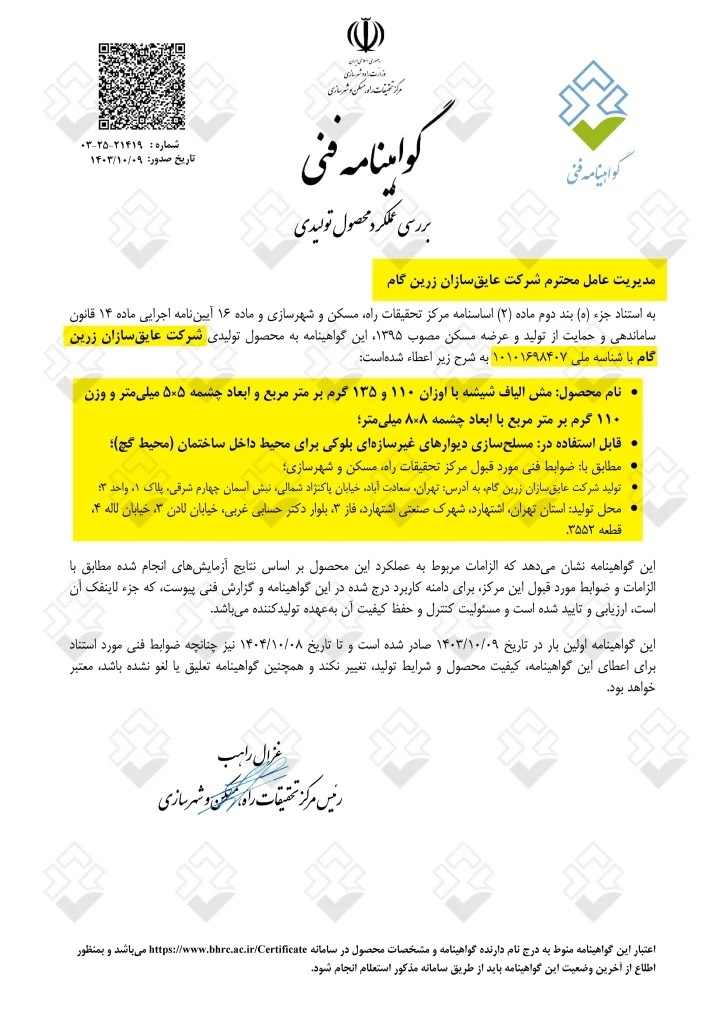 جمهوری اسلامی ایران
وزارت راه و شهرسازی
مرکز تحقیقات راه، مسکن و شهرسازی
گواهینامه فنی
بررسی عملکرد محصول تولیدی
گواهینامه فنی
شماره : ۰۳-۲۵-۲۱۴۱۹
تاریخ صدور: ۱۴۰۳/۱۰/۰۹
مدیریت عامل محترم شرکت عایق‌سازان زرین گام
به استناد جزء (ه) بند دوم ماده (۲) اساسنامه مرکز تحقیقات راه، مسکن و شهرسازی و ماده ۱۶ آیین‌نامه اجرایی ماده ۱۴ قانون
ساماندهی و حمایت از تولید و عرضه مسکن مصوب ۱۳۹۵، این گواهینامه به محصول تولیدی شرکت عایق‌سازان زرین
گام با شناسه ملی ۱۰۱۰۱۶۹۸۴۰۷ به شرح زیر اعطاء شده‌است:
• نام محصول: مش الیاف شیشه با اوزان ۱۱۰ و ۱۳۵ گرم بر متر مربع و ابعاد چشمه ۵×۵ میلی‌متر و وزن
۱۱۰ گرم بر متر مربع با ابعاد چشمه ۸×۸ میلی‌متر؛
• قابل استفاده در: مسلح‌سازی دیوارهای غیرسازه‌ای بلوکی برای محیط داخل ساختمان (محیط گچ)؛
• مطابق با: ضوابط فنی مورد قبول مرکز تحقیقات راه، مسکن و شهرسازی؛
• تولید شرکت عایق‌سازان زرین گام، به آدرس: تهران، سعادت آباد، خیابان پاکنژاد شمالی، نبش آسمان چهارم شرقی، پلاک ۱، واحد ۳؛
• محل تولید: استان تهران، اشتهارد، شهرک صنعتی اشتهارد، فاز ۳، بلوار دکتر حسابی غربی، خیابان لادن ۳، خیابان لاله ۴،
قطعه ۳۵۵۲.
این گواهینامه نشان می‌دهد که الزامات مربوط به عملکرد این محصول بر اساس نتایج آزمایش‌های انجام شده مطابق با
الزامات و ضوابط مورد قبول این مرکز، برای دامنه کاربرد درج شده در این گواهینامه و گزارش فنی پیوست، که جزء لاینفک آن
است، ارزیابی و تایید شده است و مسئولیت کنترل و حفظ کیفیت آن به‌عهده تولیدکننده می‌باشد.
این گواهینامه اولین بار در تاریخ ۱۴۰۳/۱۰/۰۹ صادر شده است و تا تاریخ ۱۴۰۴/۱۰/۰۸ نیز چنانچه ضوابط فنی مورد استناد
برای اعطای این گواهینامه، کیفیت محصول و شرایط تولید، تغییر نکند و همچنین گواهینامه تعلیق یا لغو نشده باشد، معتبر
خواهد بود.
غزال راهب
رئیس مرکز تحقیقات راه، مسکن و شهرسازی
اعتبار این گواهینامه منوط به درج نام دارنده گواهینامه و مشخصات محصول در سامانه https://www.bhrc.ac.ir/Certificate می‌باشد و بمنظور
اطلاع از آخرین وضعیت این گواهینامه باید از طریق سامانه مذکور استعلام انجام شود.